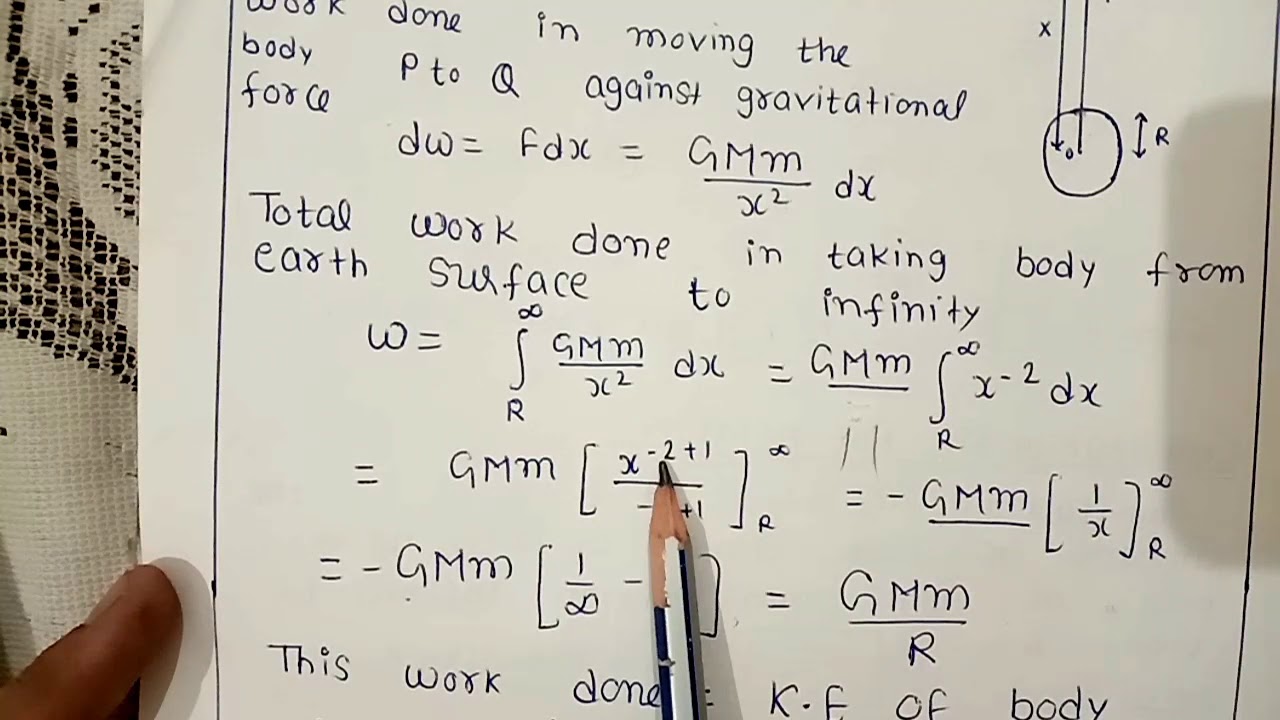 work done in moving the
body P to Q against gravitational
force
dw = Fdx = GMm/x² dx
x
R
o
Total work done in taking body from
earth surface to infinity
w = ∫_R^∞ GMm/x² dx = GMm ∫_R^∞ x⁻² dx
= GMm [x⁻²⁺¹/ +1]_R^∞ = - GMm [1/x]_R^∞
= - GMm [1/∞ - ] = GMm/R
This work done = K.E of body